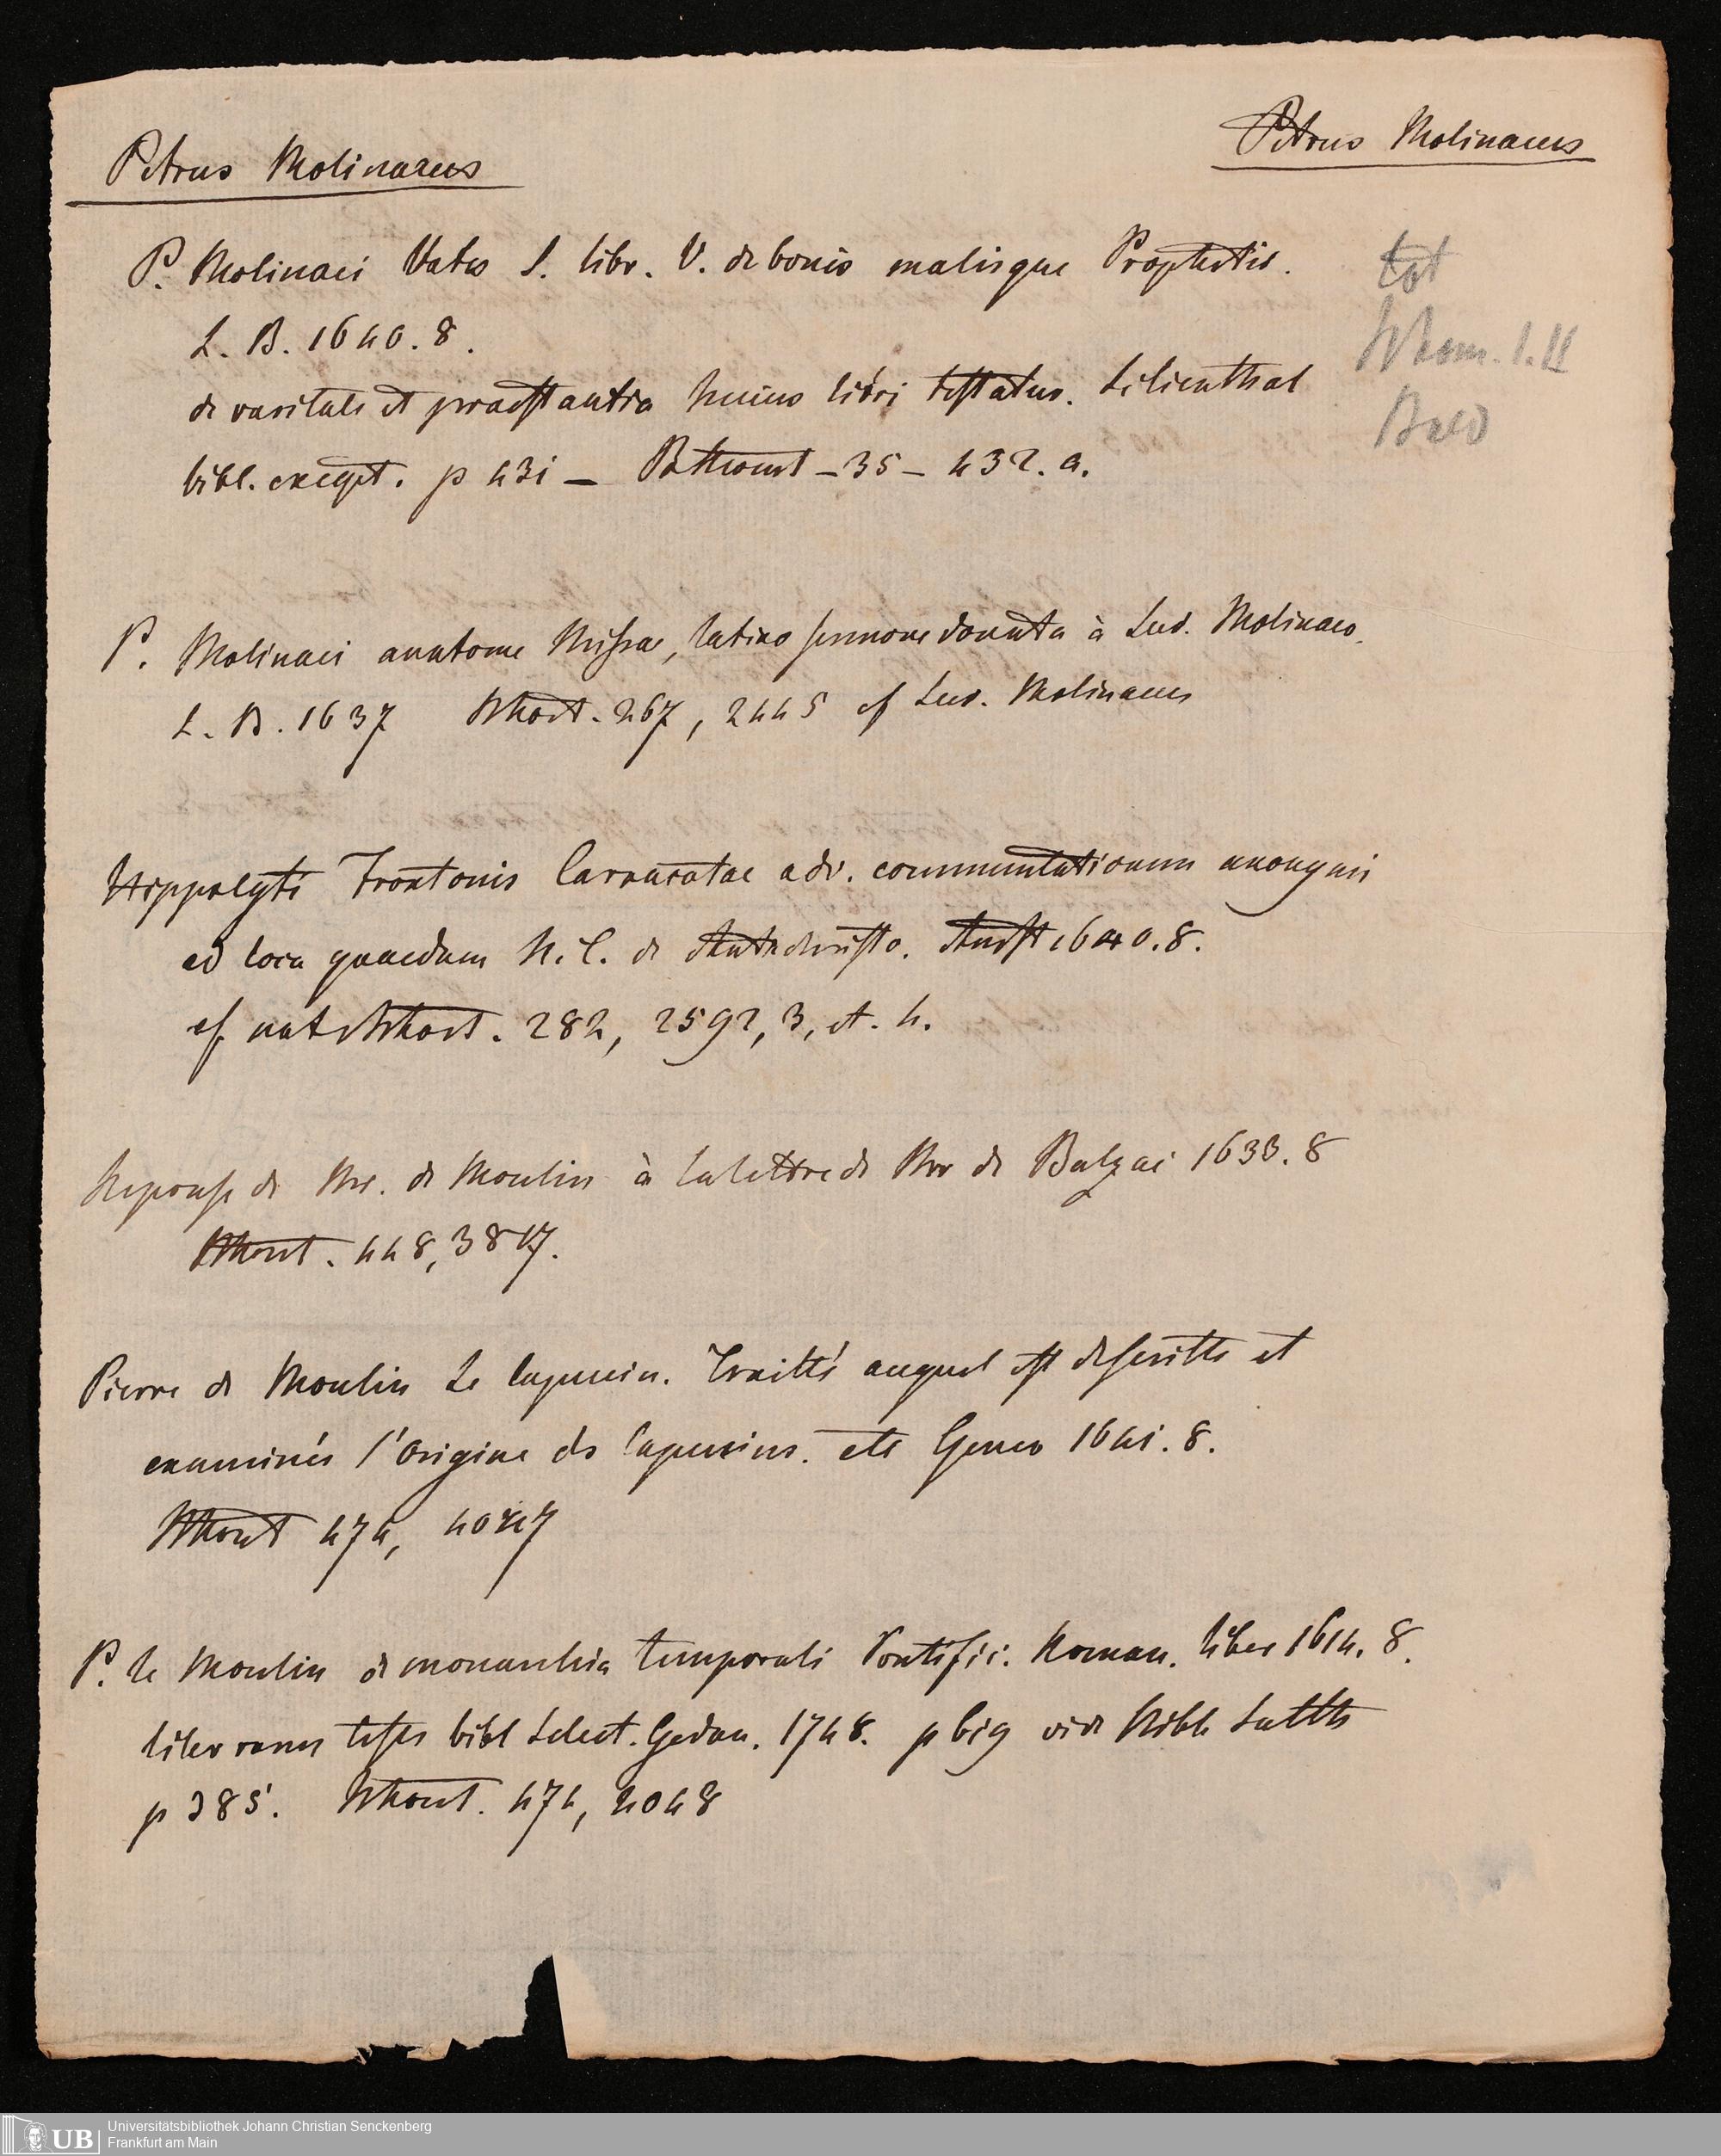 Petrus Molinaeus
Petrus Molinaeus
P. Molinaei Vates S. libr. V. de bonis malisque Prophetis.
L. B. 1640. 8.
de raritate et praestantia huius libri testatur. Lilienthal
bibl. exeget. p 431 — — 35 — 432. a.
tot
I. II
P. Molinaei anatome Missae, latino sermone donata à Lud. Molinaeo.
L. B. 1637 267, 2445 cf Lud. Molinaeus
Hippolyti Frontonis Caracotae adv. commentationem anonymi
ad loca quaedam N. T. de Antichristo. Amst 1640. 8.
cf 282, 2592, 3, et. 4.
Reponse de Mr. de Moulin à la lettre de Mr de Balzac 1633. 8
448, 3817.
Pierre de Moulin Le Capucin. Traitté auquel est descritte et
examinés l'Origine des Capucins. etc Genev 1641. 8.
474, 4047
P. le Moulin de monarchia temporali Pontific. Roman. liber 1614. 8.
liber rarus testes bibl Select. Gedan. 1748. p 619 vide Bibl.
p 385. 474, 4048
Universitätsbibliothek Johann Christian Senckenberg
Frankfurt am Main
UB